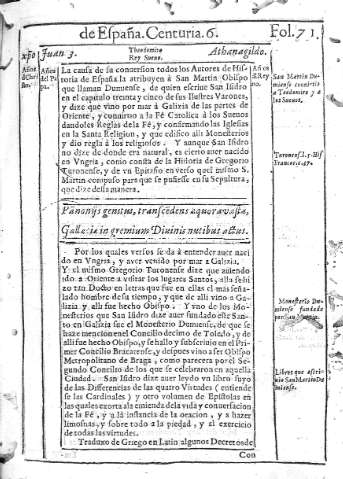 de España. Centuria. 6. Fol. 71.
xpõ Juan 3. Theodomiro Athanagildo.
Rey Sueuo.
La causa de su conuersion todos los Autores de His-
toria de España la atribuyen à San Martin Obispo
que llaman Dumiense, de quien escriue San Isidro
en el capitulo trenta y cinco de sus Illustres Varones,
y dize que vino por mar à Galizia de las partes de
Oriente, y conuirtio a la Fè Catolica à los Sueuos
dandoles Reglas de la Fè, y confirmando las Iglesias
en la Santa Religion, y que edificò alli Monesterios
y dio regla à los religiosos. Y aunque San Isidro
no dize de donde era natural, es cierto auer nacido
en Vngria, como consta de la Historia de Gregorio
Turonense, y de vn Epitafio en verso que el mismo S.
Martin compuso para que se pusiesse en su Sepultura,
que dize desta manera.
San Martin Du-
miense conuirtio
a Teodomiro y a
los Sueuos.
Pannonijs genitus, transcēdens aquora vasta,
Gallecia in gremium Divinis nutibus actus.
Por los quales versos se da à entender auer naci
do en Vngria, y auer venido por mar a Galizia.
Y el mismo Gregorio Turonense dize que auiendo
ido a Oriente a visitar los lugares Santos, alla se hi
zo tan Docto en letras que fue en ellas el mas seña-
lado hombre de su tiempo, y que de alli vino a Ga-
lizia y alli fue hecho Obispo. Y vno de los Mo-
nesterios que San Isidro dize auer fundado este San-
to en Galizia fue el Monesterio Dumiense, de que se
haze mencion en el Concilio decimo de Toledo, y de
alli fue hecho Obispo, y se hallo y subscriuio en el Pri
mer Concilio Bracarense, y despues vino a ser Obispo
Metropolitano de Braga, como parecera por el Se-
gundo Concilio de los que se celebraron en aquella
Ciudad. San Isidro dize auer leydo vn libro suyo
de las Differencias de las quatro Virtudes (entiende
se las Cardinales) y otro volumen de Epistolas en
las quales exorta a la emienda de la vida y conuersacion
de la Fé, y a la instancia de la oracion, y a hazer
limosnas, y sobre todo a la piedad, y al exercicio
de todas las virtudes.
Traduxo de Griego en Latin algunos Decretos de
Monesterio Du-
miense fundado
por San Martin.
Libros que escri-
uio San Martin Du
miense.
Con